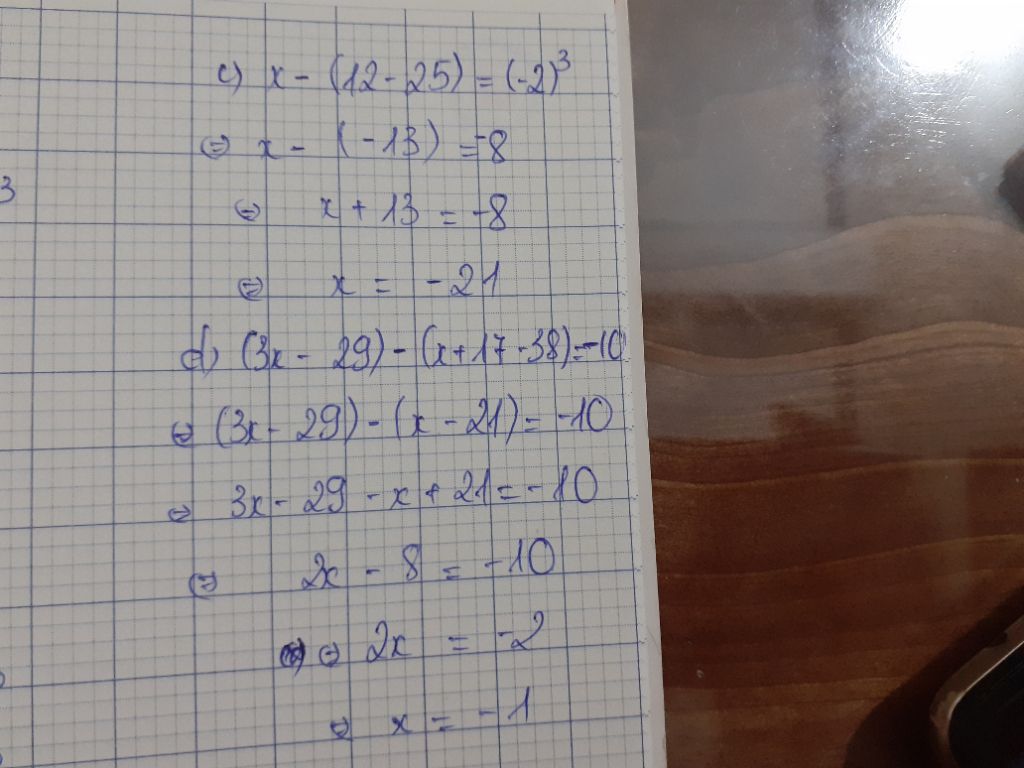 c) x - (12 - 25) = (-2)³
⇔ x - (-13) = -8
3
⇔ x + 13 = -8
⇔ x = -21
d) (3x - 29) - (x + 17 - 38) = -10
⇔ (3x - 29) - (x - 21) = -10
⇔ 3x - 29 - x + 21 = -10
⇔ 2x - 8 = -10
⇔ 2x = -2
⇔ x = -1